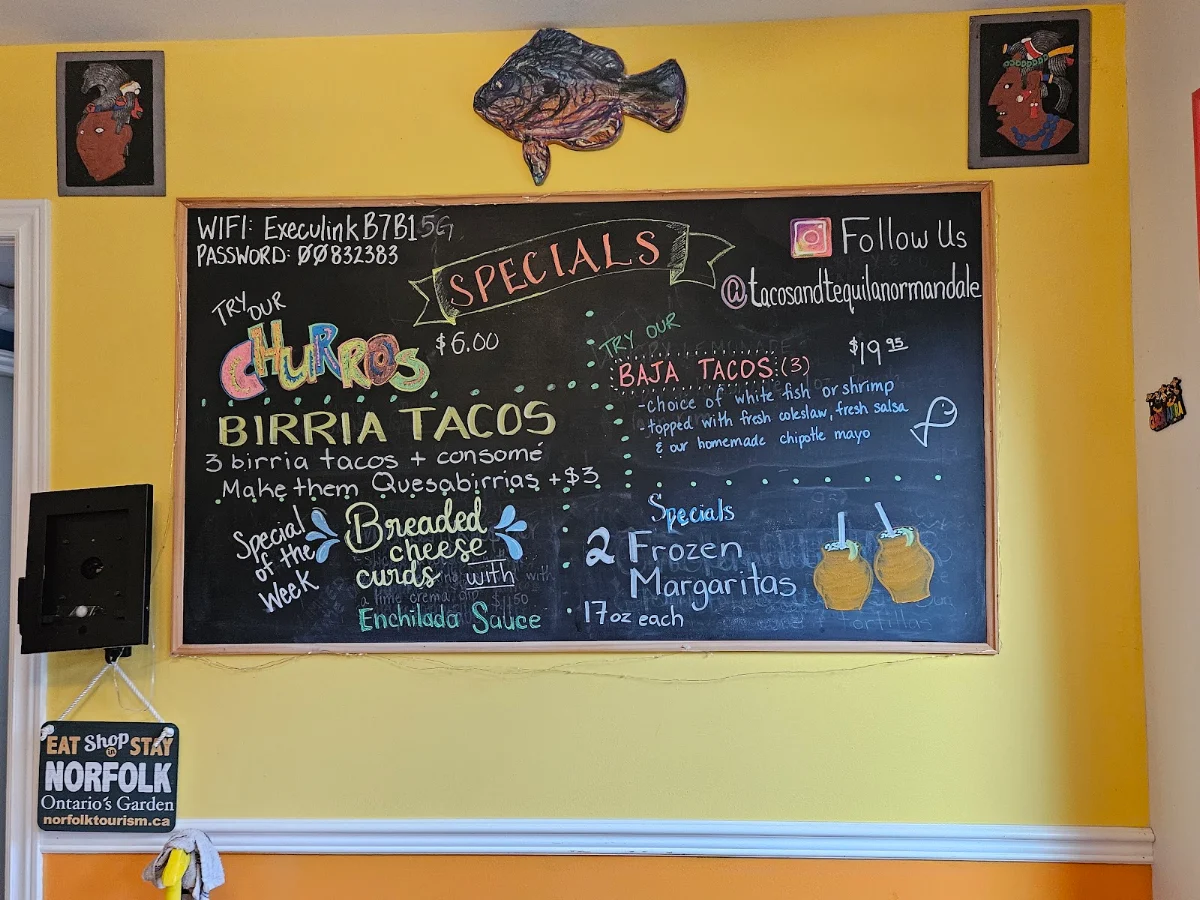 WIFI: ExeculinkB7B1 5G
PASSWORD: 00832383
SPECIALS
Follow Us
@tacosandtequilanormandale
TRY OUR
CHURROS $6.00
BIRRIA TACOS
3 birria tacos + consomé
Make them Quesabirrias +$3
Special
of the
Week
Breaded
cheese
curds with
Enchilada Sauce
TRY OUR
BAJA TACOS: (3) $19.95
-choice of white fish or shrimp
-topped with fresh coleslaw, fresh salsa
& our homemade chipotle mayo
Specials
2 Frozen
Margaritas
17oz each
EAT Shop in STAY
NORFOLK
Ontario's Garden
norfolktourism.ca